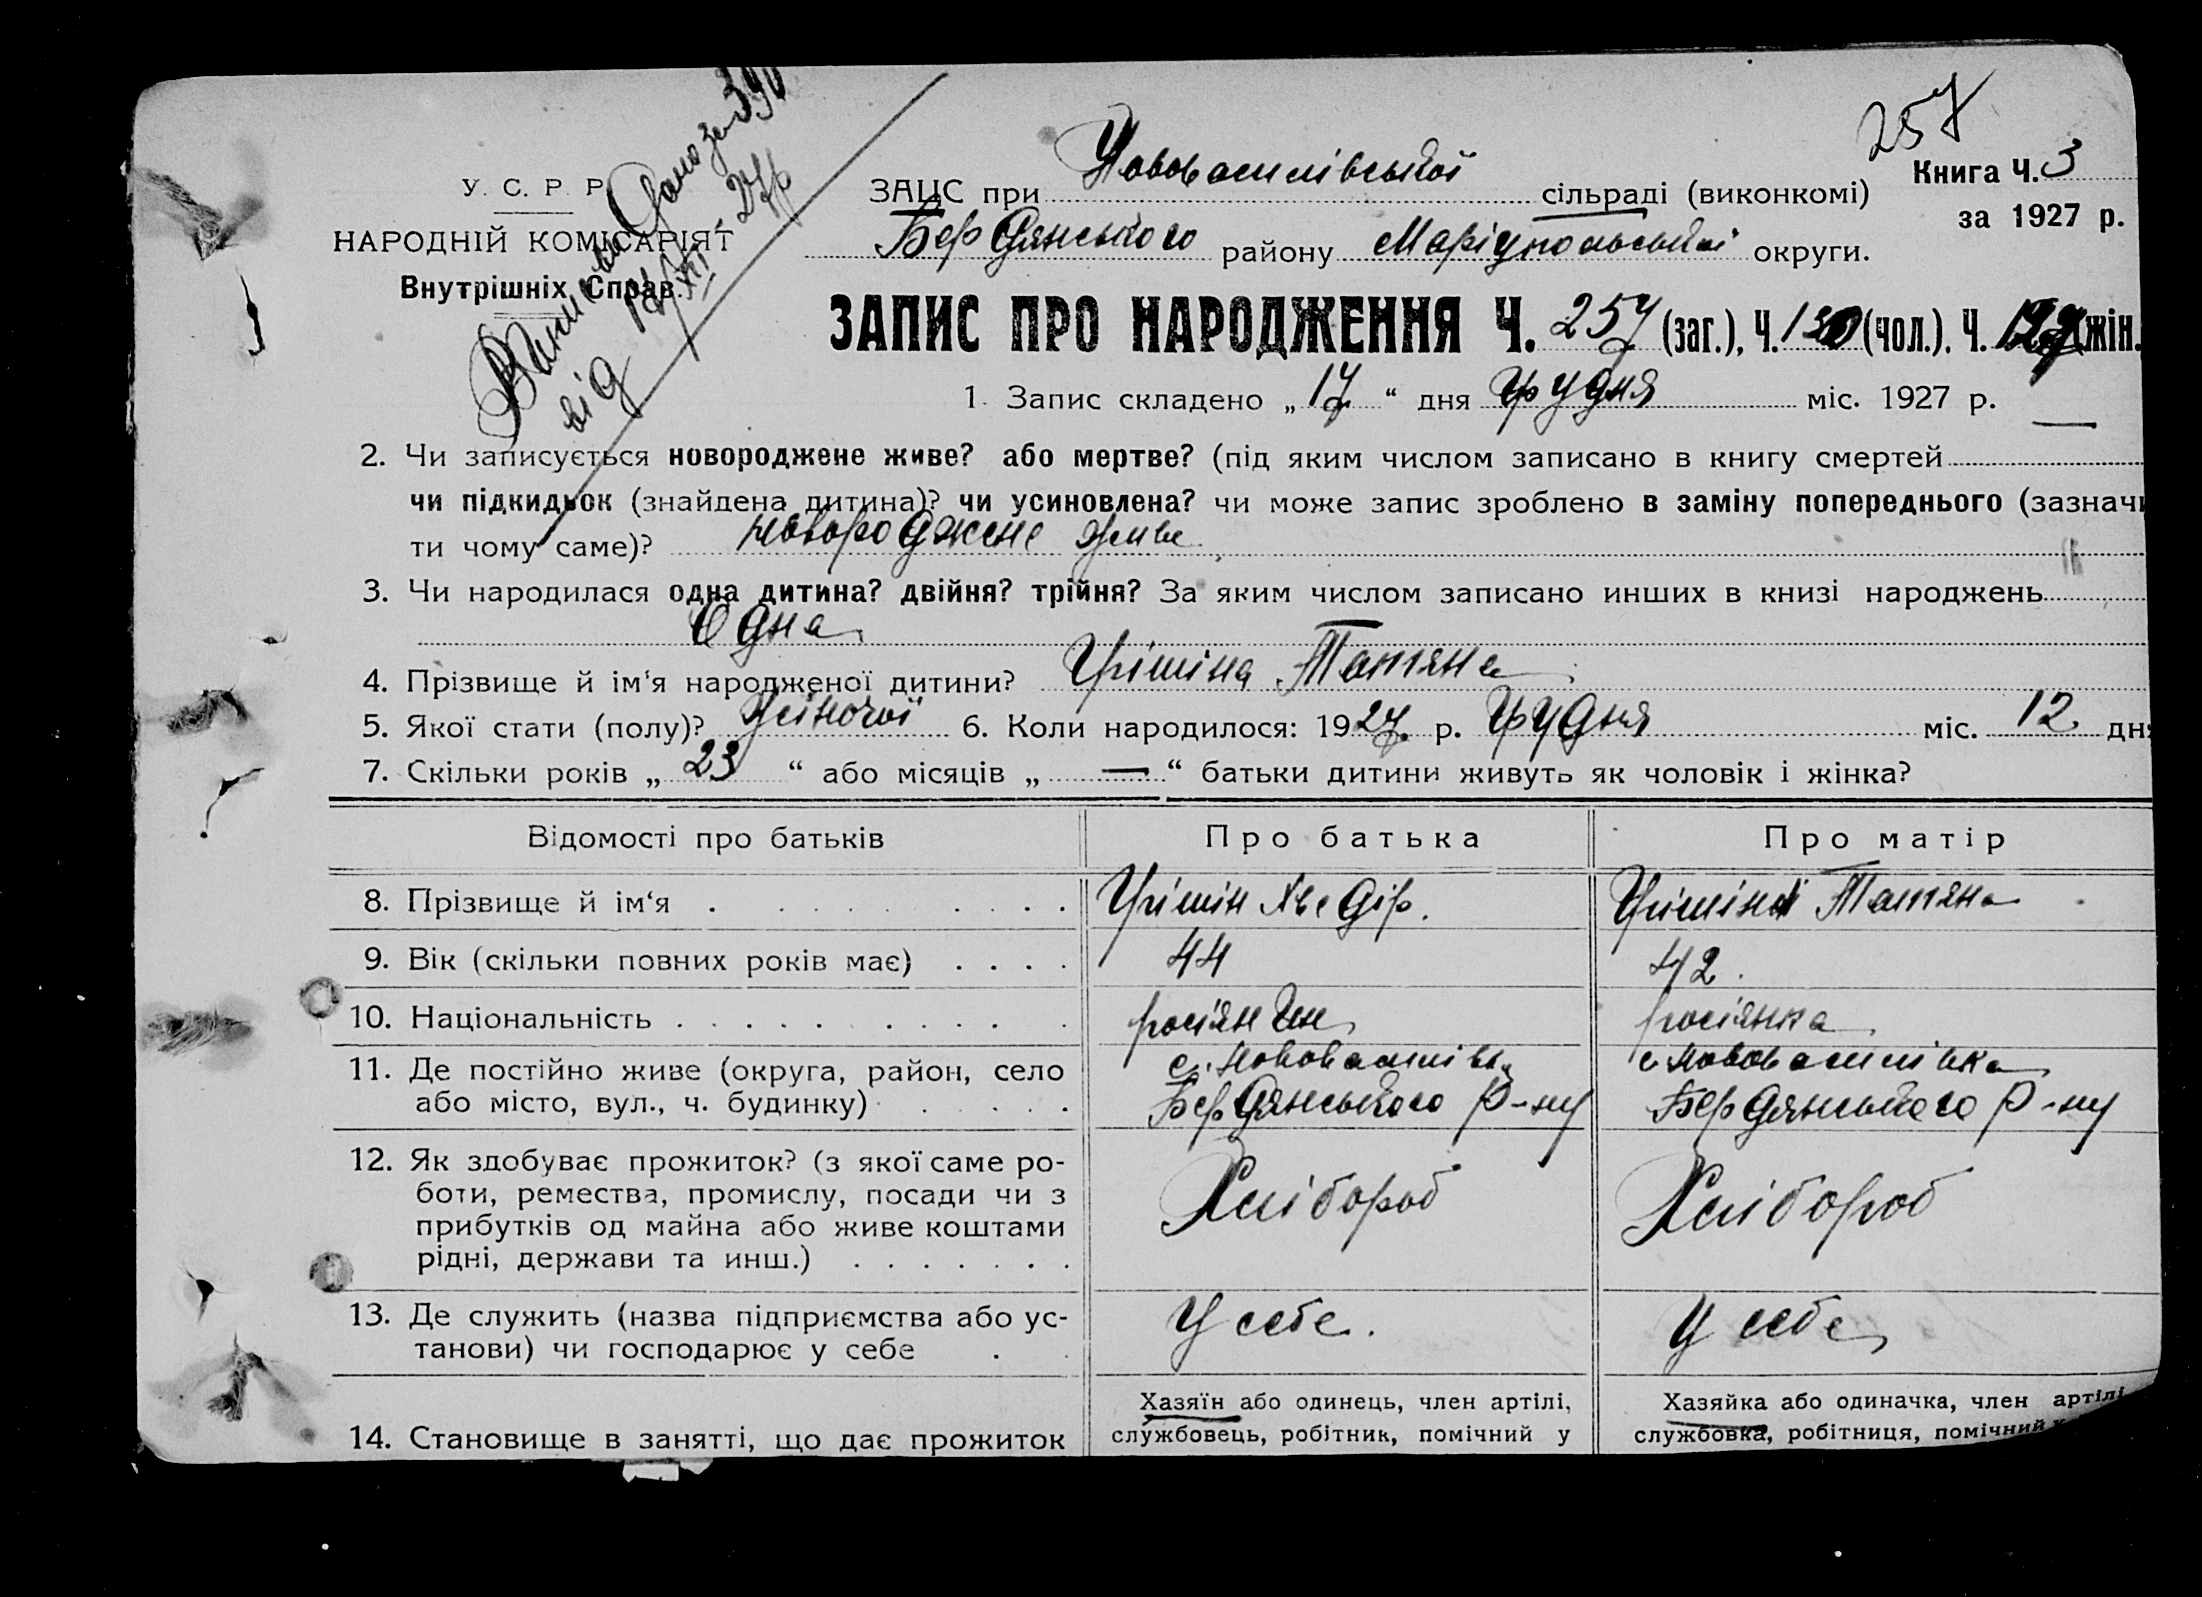 257
Книга Ч. 3
за 1927 р.
У. С. Р. Р.
НАРОДНІЙ КОМІСАРІЯТ
Внутрішніх Справ.
від XII 27р
ЗАЦС при Нововасилівської сільраді (виконкомі)
Бердянського району Маріупольської округи.
ЗАПИС ПРО НАРОДЖЕННЯ Ч. 257 (заг.), Ч. 130 (чол.), Ч. (жін.
1. Запис складено „ 17 “ дня грудня міс. 1927 р.
2. Чи записується новороджене живе? або мертве? (під яким числом записано в книгу смертей —
чи підкидьок (знайдена дитина)? чи усиновлена? чи може запис зроблено в заміну попереднього (зазначи
ти чому саме)? новороджене живе
3. Чи народилася одна дитина? двійня? трійня? За яким числом записано инших в книзі народжень
Одна —
4. Прізвище й ім‘я народженої дитини? Грішіна Татяна
5. Якої стати (полу)? жіночої 6. Коли народилося: 1927. р. грудня міс. 12 дня
7. Скільки років „ 23 “ або місяців „ — “ батьки дитини живуть як чоловік і жінка?
Відомості про батьків Про батька Про матір
8. Прізвище й ім‘я Грішін Хведір. Грішіна Татяна
9. Вік (скільки повних років має) 44 42.
10. Національність росіянин росіянка
11. Де постійно живе (округа, район, село с. Нововасилівка с Нововасилівка
або місто, вул., ч. будинку) Бердянського р-ну Бердянського р-ну
12. Як здобуває прожиток? (з якої саме ро-
боти, ремества, промислу, посади чи з Хлібороб Хлібороб
прибутків од майна або живе коштами
рідні, держави та инш.)
13. Де служить (назва підприємства або ус- У себе. У себе
танови) чи господарює у себе
Хазяїн або одинець, член артілі, Хазяйка або одиначка, член артілі
14. Становище в занятті, що дає прожиток службовець, робітник, помічний у службовка, робітниця, помічний